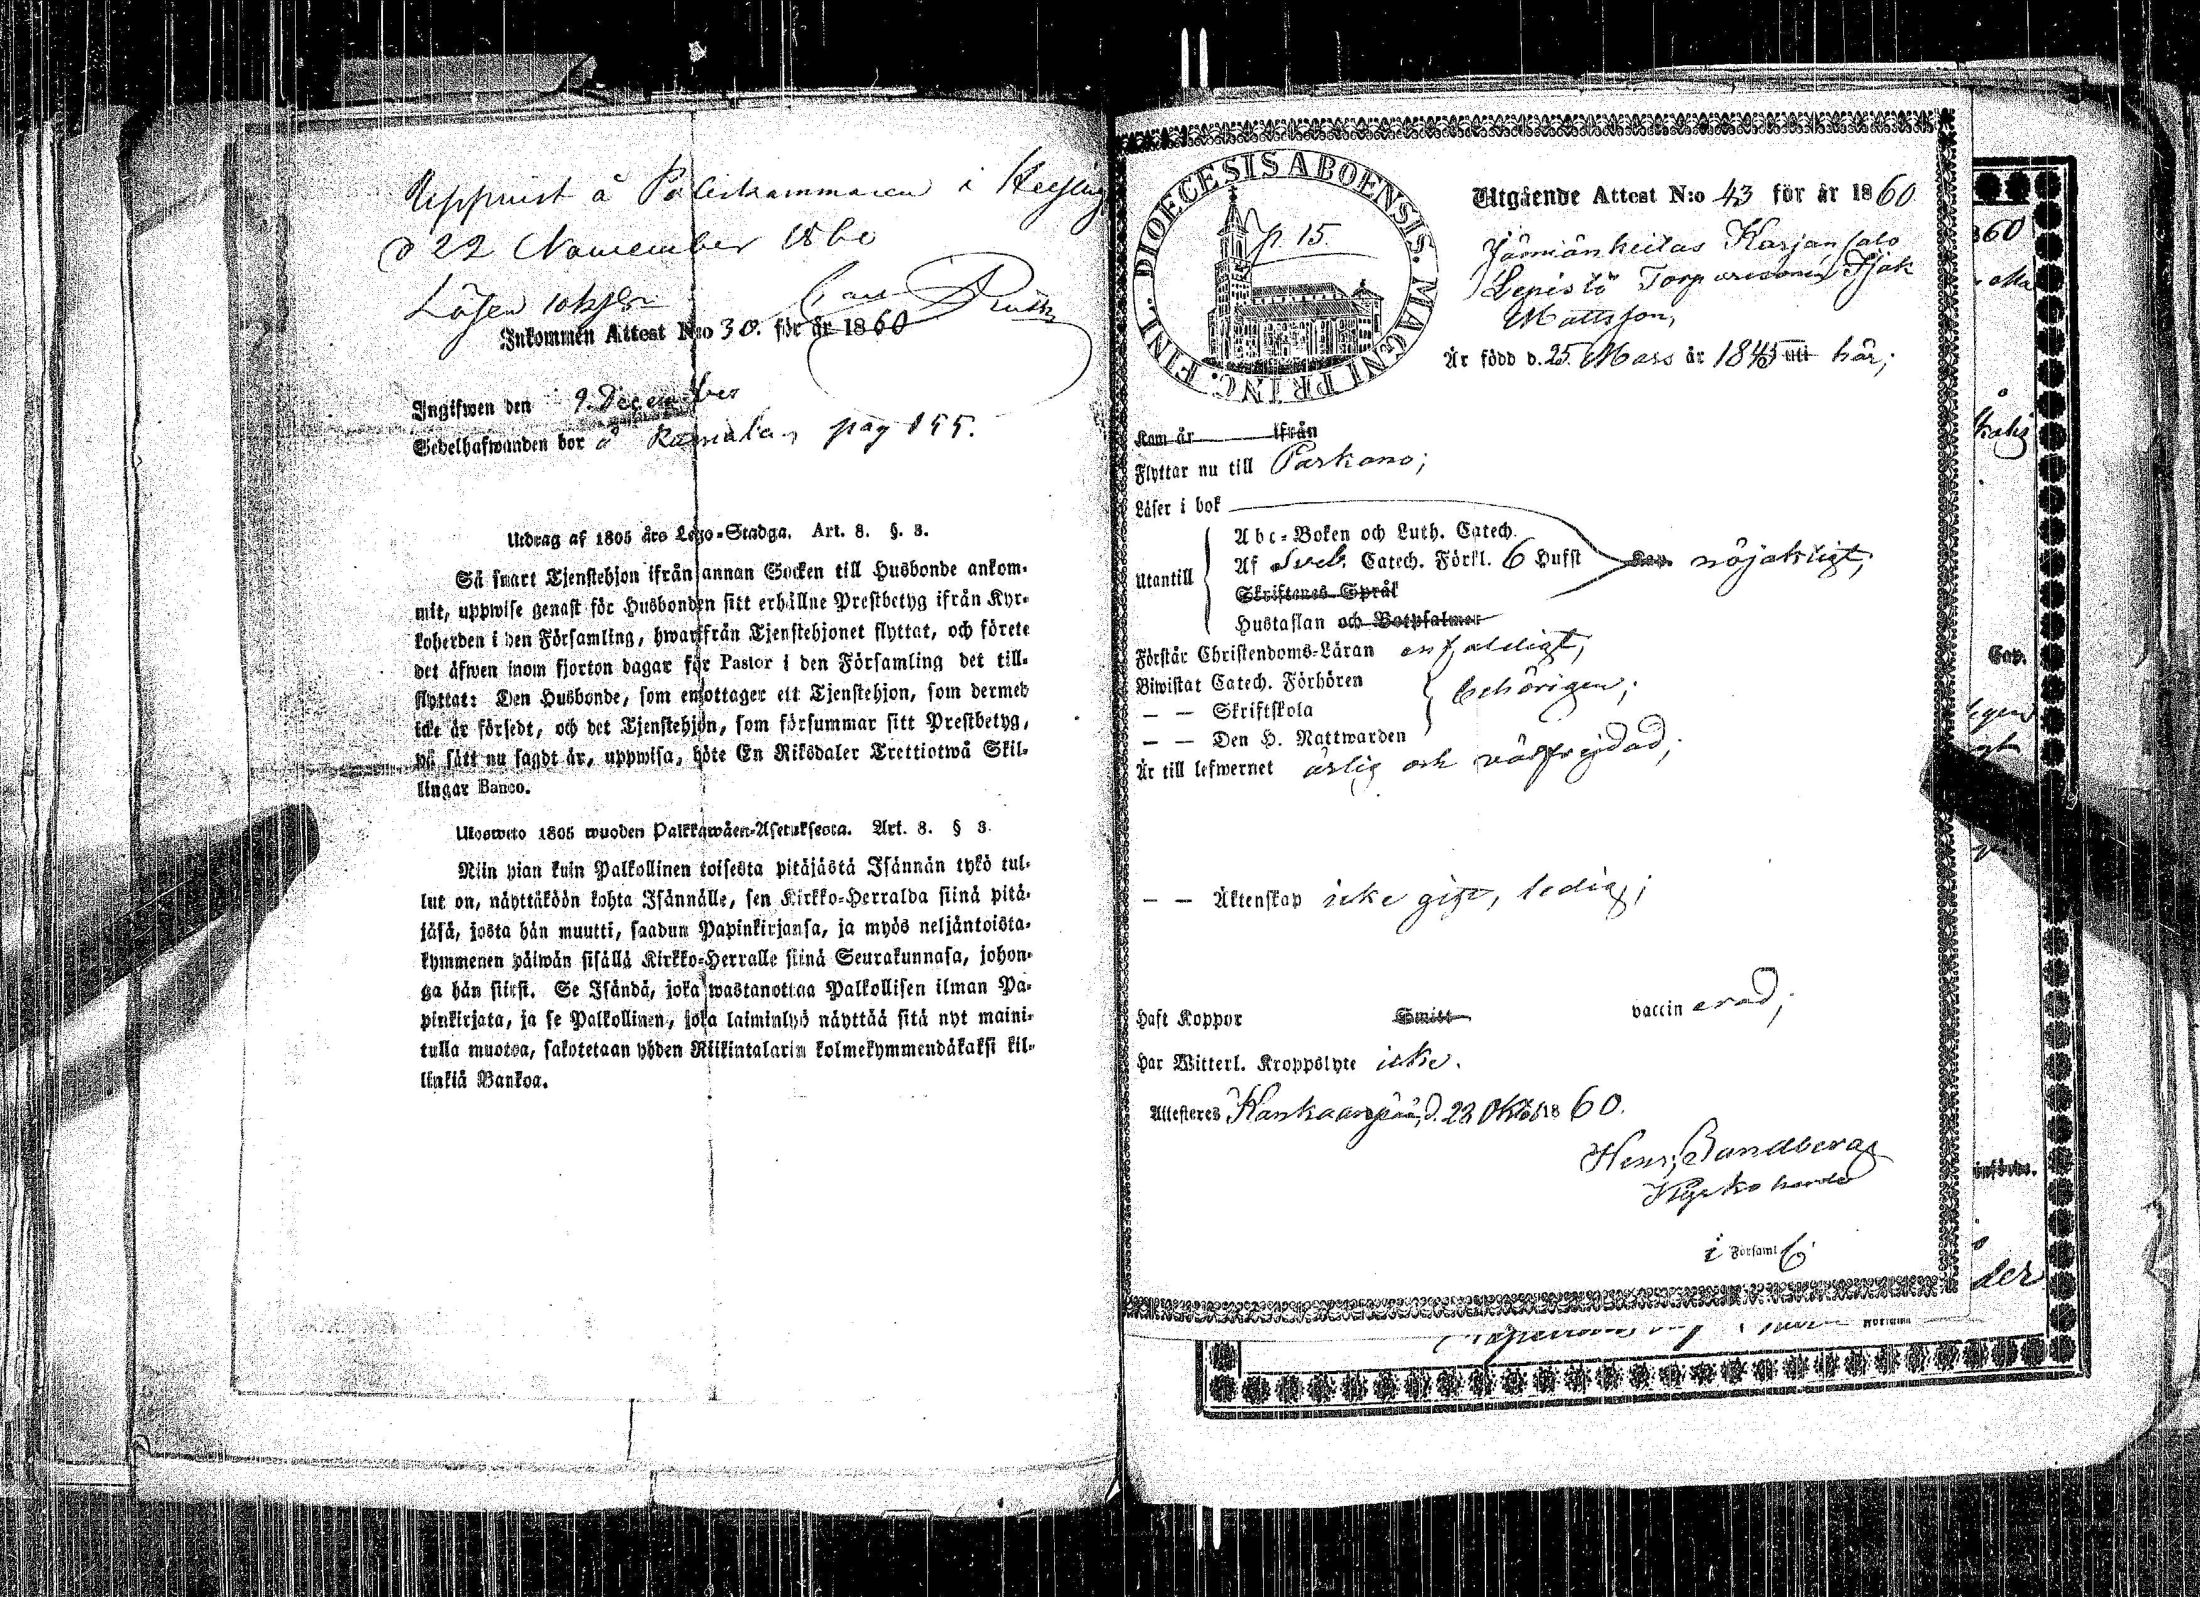 Uppvist å Poliskammaren i Helsing
d 22 November 1860
Lösen 10 kop Sr Carl
Inkommen Attest N:o 30. för år 1860
Ingifwen den 9. December
Sedelhafwanden bor å pag 155.
Utdrag af 1805 års Lego-Stadga. Art. 8. §. 3.
Så snart Tjenstehjon ifrån annan Socken till Husbonde ankom-
mit, uppwise genast för Husbonden sitt erhållne Prestbetyg ifrån Kyr-
koherden i den Församling, hwarifrån Tjenstehjonet flyttat, och förete
det äfwen inom fjorton dagar för Pastor i den Församling det till-
flyttat: Den Husbonde, som emottager ett Tjenstehjon, som dermed
icke är försedt, och det Tjenstehjon, som försummar sitt Prestbetyg,
på sätt nu sagdt är, uppwisa, böte En Riksdaler Trettiotwå Skil-
lingar Banco.
Ulosweto 1805 wuoden Palkkawäen-Asetuksesta. Art. 8. § 3.
Niin pian kuin Palkollinen toisesta pitäjästä Isännän tykö tul-
lut on, näyttäköön kohta Isännälle, sen Kirkko-Herralda siinä pitä-
jäsä, josta hän muutti, saadun Papinkirjansa, ja myös neljäntoista-
kymmenen päiwän sisällä Kirkko-Herralle siinä Seurakunnasa, johon-
ga hän siirsi. Se Isändä, joka wastanottaa Palkollisen ilman Pa-
pinkirjata, ja se Palkollinen, joka laiminlyö näyttää sitä nyt maini-
tulla muotoa, sakotetaan yhden Riikintalarin kolmekymmendäkaksi kil-
linkiä Bankoa.
DIOECESIS ABOENSIS. MAGNI PRINC. FINL.
p. 15.
Utgående Attest N:o 43 för år 1860
Jämiänkeitas Karjansalo
Lepistö Torparesonen Isak
Mattsson,
Är född d. 25. Mars år 1845 uti här;
Kom år ifrån
Flyttar nu till Parkano;
Läser i bok
Utantill
Abc-Boken och Luth. Catech.
Af Sveb. Catech. Förkl. 6 Hufst Kap. nöjaktigt,
Skriftenes Språk
Hustaflan och Botpsalmer
Förstår Christendoms-Läran enfaldigt,
Biwistat Catech. Förhören
— — Skriftskola behörigen;
— — Den H. Nattwarden
Är till lefwernet ärlig och välfrejdad;
— — Äktenskap icke gift, ledig;
Haft Koppor Smitt vaccinerad;
Har Witterl. Kroppslyte icke.
Attesteras Kankaanpää, d. 23 Oktob 1860.
Henr. Sandberg
Kyrkoherde
i Församl
60
Cap.
der